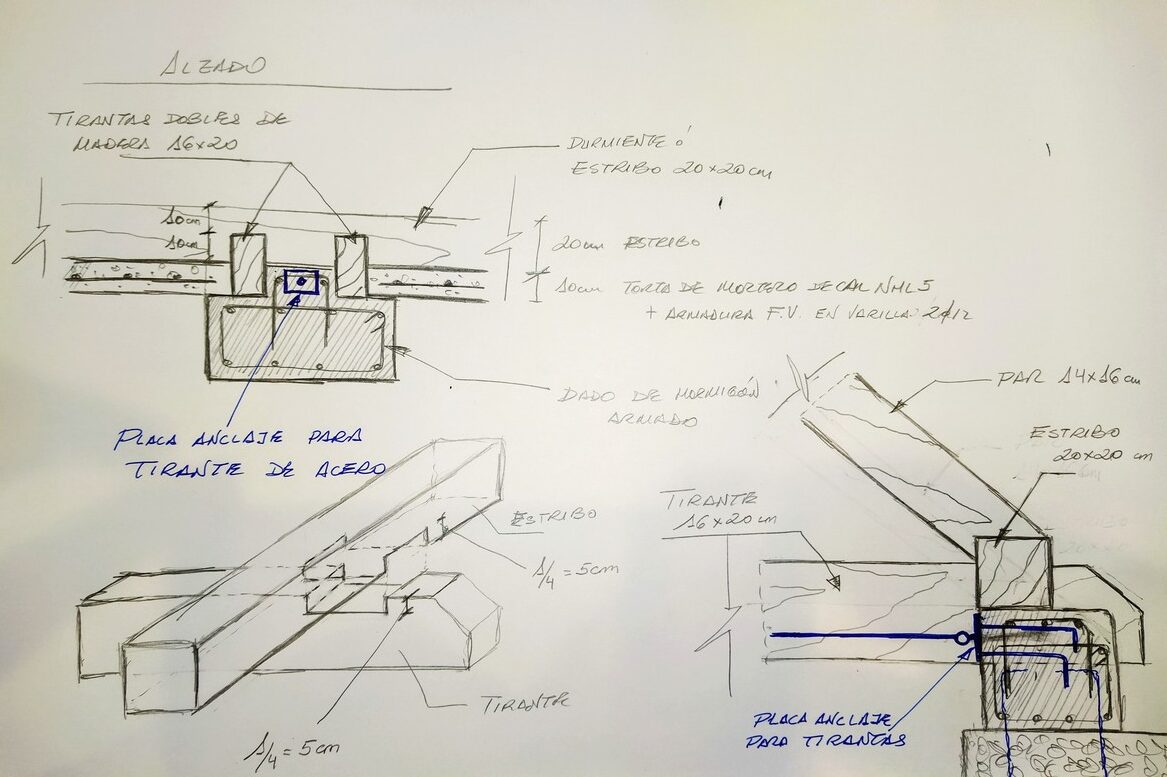 ALZADO
TIRANTAS DOBLES DE
MADERA 16x20
DURMIENTE Ó
ESTRIBO 20x20cm
10cm
10cm
20cm ESTRIBO
10cm TORTA DE MORTERO DE CAL NHL5
+ ARMADURA F.V. EN VARILLA 2ø12
DADO DE HORMIGÓN
ARMADO
PLACA ANCLAJE PARA
TIRANTE DE ACERO
PAR 14x16cm
ESTRIBO
20x20 cm
TIRANTE
16x20cm
ESTRIBO
1/4 = 5cm
TIRANTE
1/4 = 5cm
PLACA ANCLAJE
PARA TIRANTAS